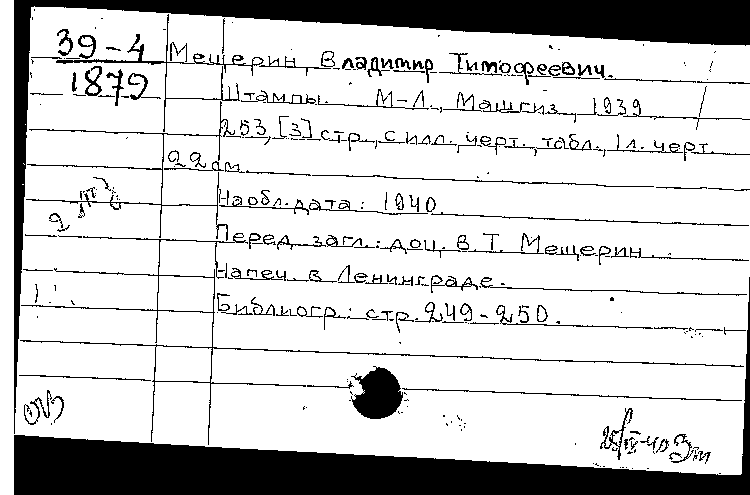 39-4
1879
Мещерин, Владимир Тимофеевич.
Штампы. М-Л., Машгиз, 1939
253, [3] стр., с илл., черт., табл., 1 л. черт.
22 см.
На обл. дата: 1940.
Перед загл.: доц. В. Т. Мещерин.
Напеч. в Ленинграде.
Библиогр.: стр. 249-250.